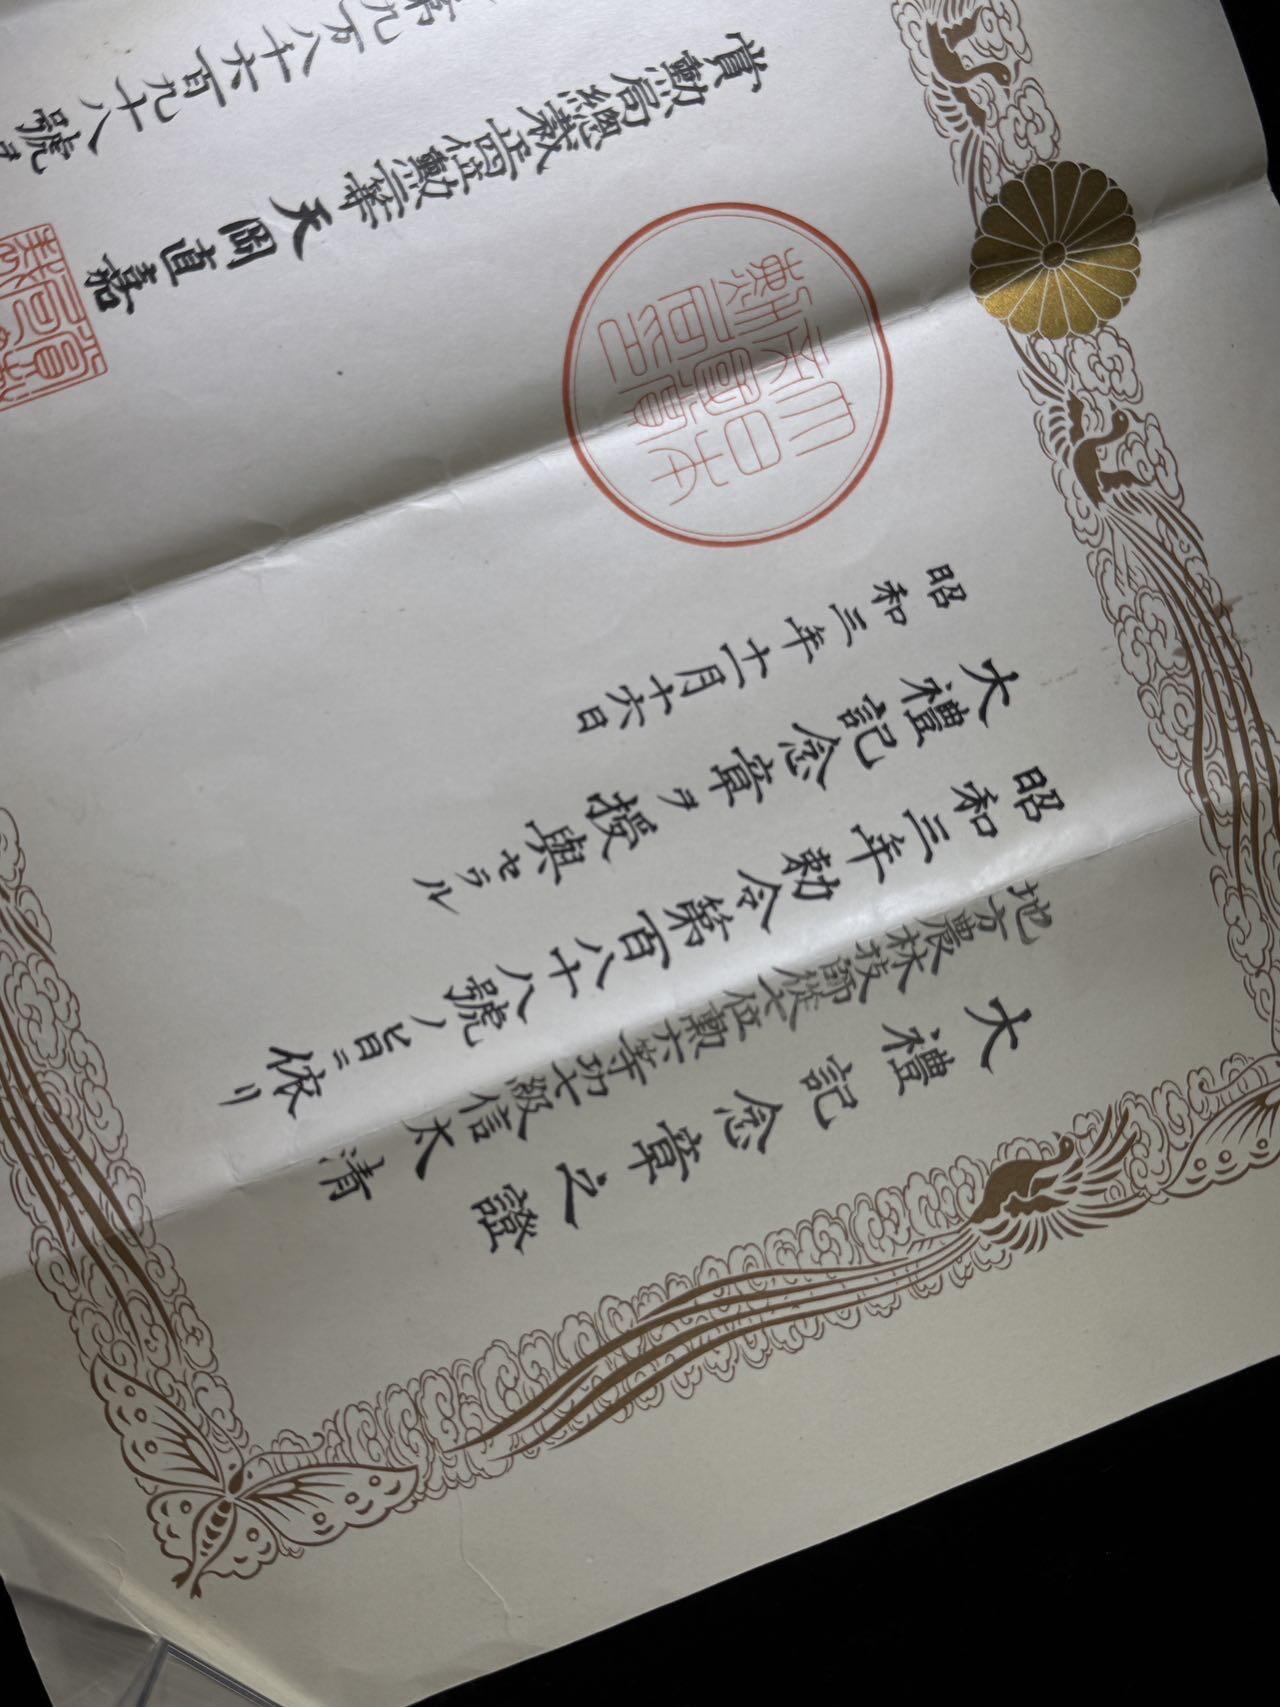 大禮記念章之證
地方農林技師從七位勲六等功七級信太清
昭和三年勅令第百八十八號ノ旨ニ依リ
大禮記念章ヲ授與セラル
昭和三年十一月十六日
大日本帝國賞勲局印
賞勲局總裁正四位勲二等天岡直嘉
第九万八千六百九十八號ヲ